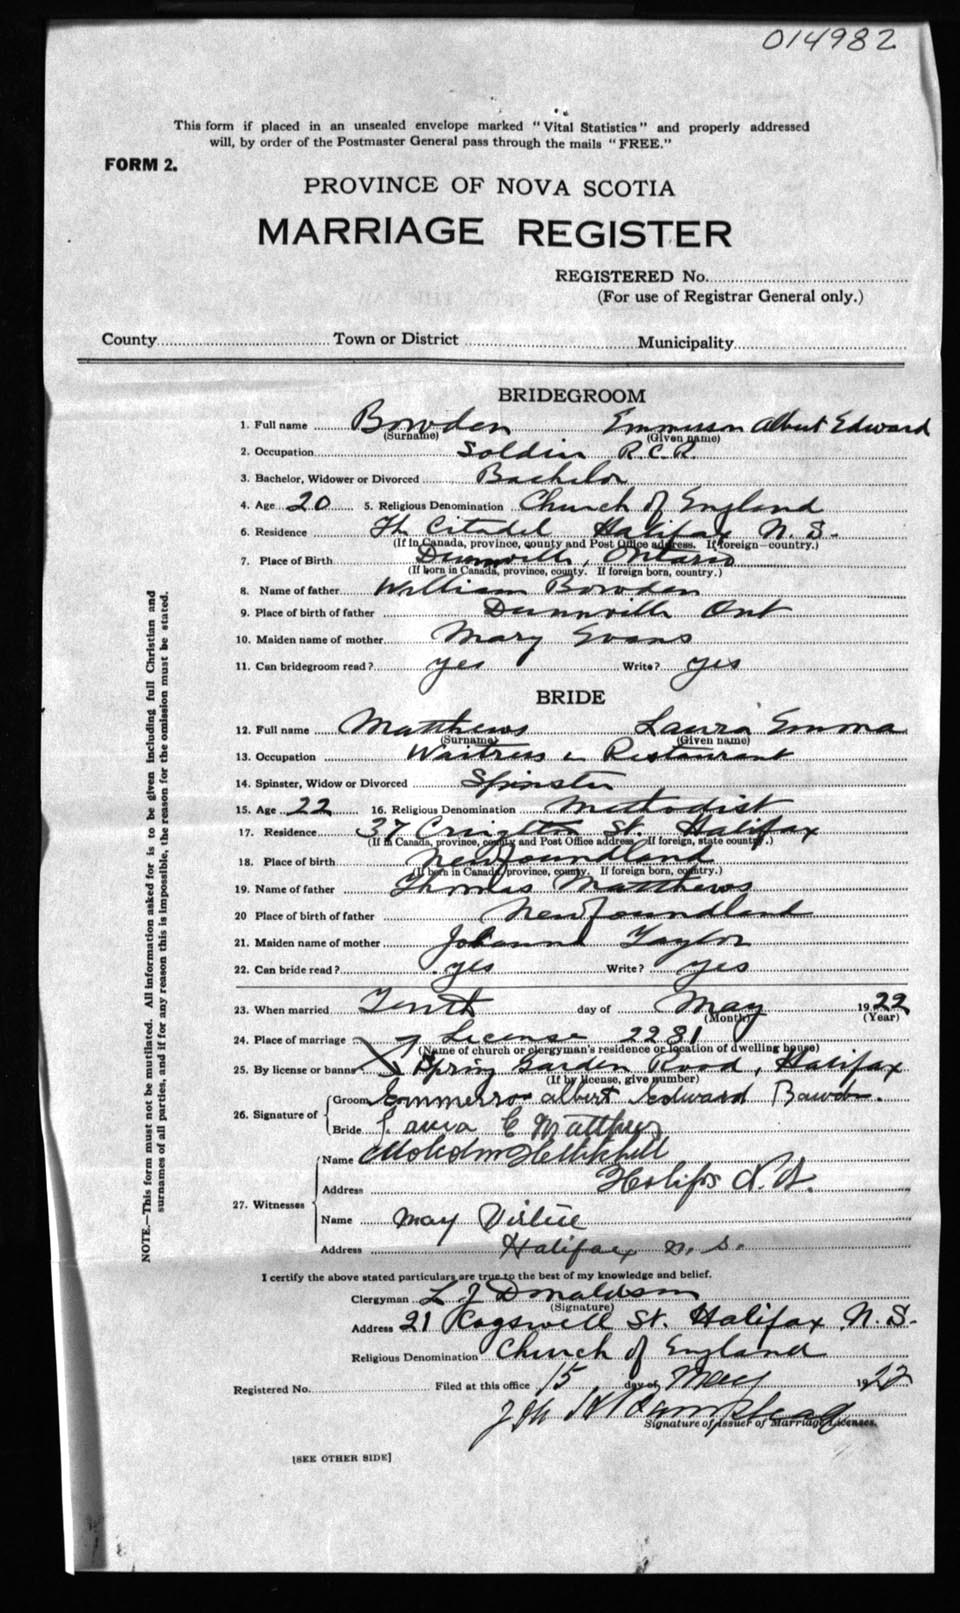 014982
This form if placed in an unsealed envelope marked "Vital Statistics" and properly addressed
will, by order of the Postmaster General pass through the mails "FREE."
FORM 2.
PROVINCE OF NOVA SCOTIA
MARRIAGE REGISTER
REGISTERED No.
(For use of Registrar General only.)
County Town or District Municipality
BRIDEGROOM
1. Full name Bowden Emmerson Albert Edward
(Surname) (Given name)
2. Occupation Soldier R.C.R.
3. Bachelor, Widower or Divorced Bachelor
4. Age 20 5. Religious Denomination Church of England
6. Residence The Citadel Halifax N. S.
(If in Canada, province, county and Post Office address. If foreign—country.)
7. Place of Birth Dunnville, Ontario
(If born in Canada, province, county. If foreign born, country.)
8. Name of father William Bowden
9. Place of birth of father Dunnville Ont
10. Maiden name of mother Mary Evans
11. Can bridegroom read? yes Write? yes
BRIDE
12. Full name Matthews Laura Emma
(Surname) (Given name)
13. Occupation Waitress in Restaurant
14. Spinster, Widow or Divorced Spinster
15. Age 22 16. Religious Denomination Methodist
17. Residence 37 St. Halifax
(If in Canada, province, county and Post Office address. If foreign, state country.)
18. Place of birth Newfoundland
(If born in Canada, province, county. If foreign born, country.)
19. Name of father Thomas Matthews
20 Place of birth of father Newfoundland
21. Maiden name of mother Johanna Taylor
22. Can bride read? yes Write? yes
23. When married Tenth day of May 1922
(Month) (Year)
24. Place of marriage License 2281
(Name of church or clergyman's residence or location of dwelling house)
25. By license or banns Spring Garden Road, Halifax
(If by license, give number)
26. Signature of Groom Emmerson Albert Edward Bowden.
Bride Laura E Matthews
27. Witnesses Name Malcolm
Address Halifax N.S.
Name May Virtue
Address Halifax N. S.
I certify the above stated particulars are true to the best of my knowledge and belief.
Clergyman L J Donaldson
(Signature)
Address 21 Cogswell St. Halifax N. S.
Religious Denomination Church of England
Registered No. Filed at this office 15 day of May 1922
Signature of Issuer of Marriage Licenses.
[SEE OTHER SIDE]
NOTE.—This form must not be mutilated. All information asked for is to be given including full Christian and
surnames of all parties, and if for any reason this is impossible, the reason for the omission must be stated.